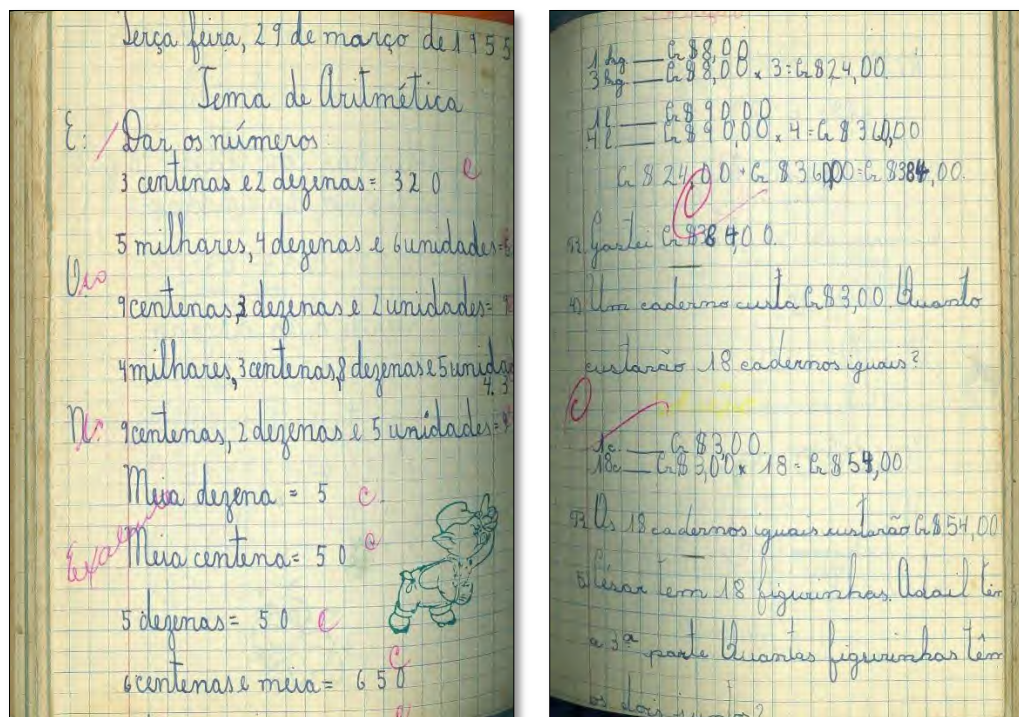 Terça feira, 29 de março de 1955
Tema de Aritmética
E: Dar os números:
3 centenas e 2 dezenas = 320 C
5 milhares, 4 dezenas e 6 unidades =
9 centenas, 3 dezenas e 2 unidades = 9
4 milhares, 3 centenas, 8 dezenas e 5 unidad
4.3
9 centenas, 2 dezenas e 5 unidades = 9
Meia dezena = 5 C
Meia centena = 50 C
5 dezenas = 50 C
C
6 centenas e meia = 650
1 kg — Cr$8,00
3 kg — Cr$8,00 x 3 = Cr$24,00
1l — Cr$90,00
4l — Cr$90,00 x 4 = Cr$360,00
Cr$24,00 + Cr$360,00 = Cr$384,00.
R: Gastei Cr$384,00.
4) Um caderno custa Cr$3,00. Quanto
custarão 18 cadernos iguais?
C
1c — Cr$3,00
18c — Cr$3,00 x 18 = Cr$54,00
R: Os 18 cadernos iguais custarão Cr$54,00
5) César tem 18 figurinhas. Adail tem
a 3ª parte Quantas figurinhas têm
os dois juntos?